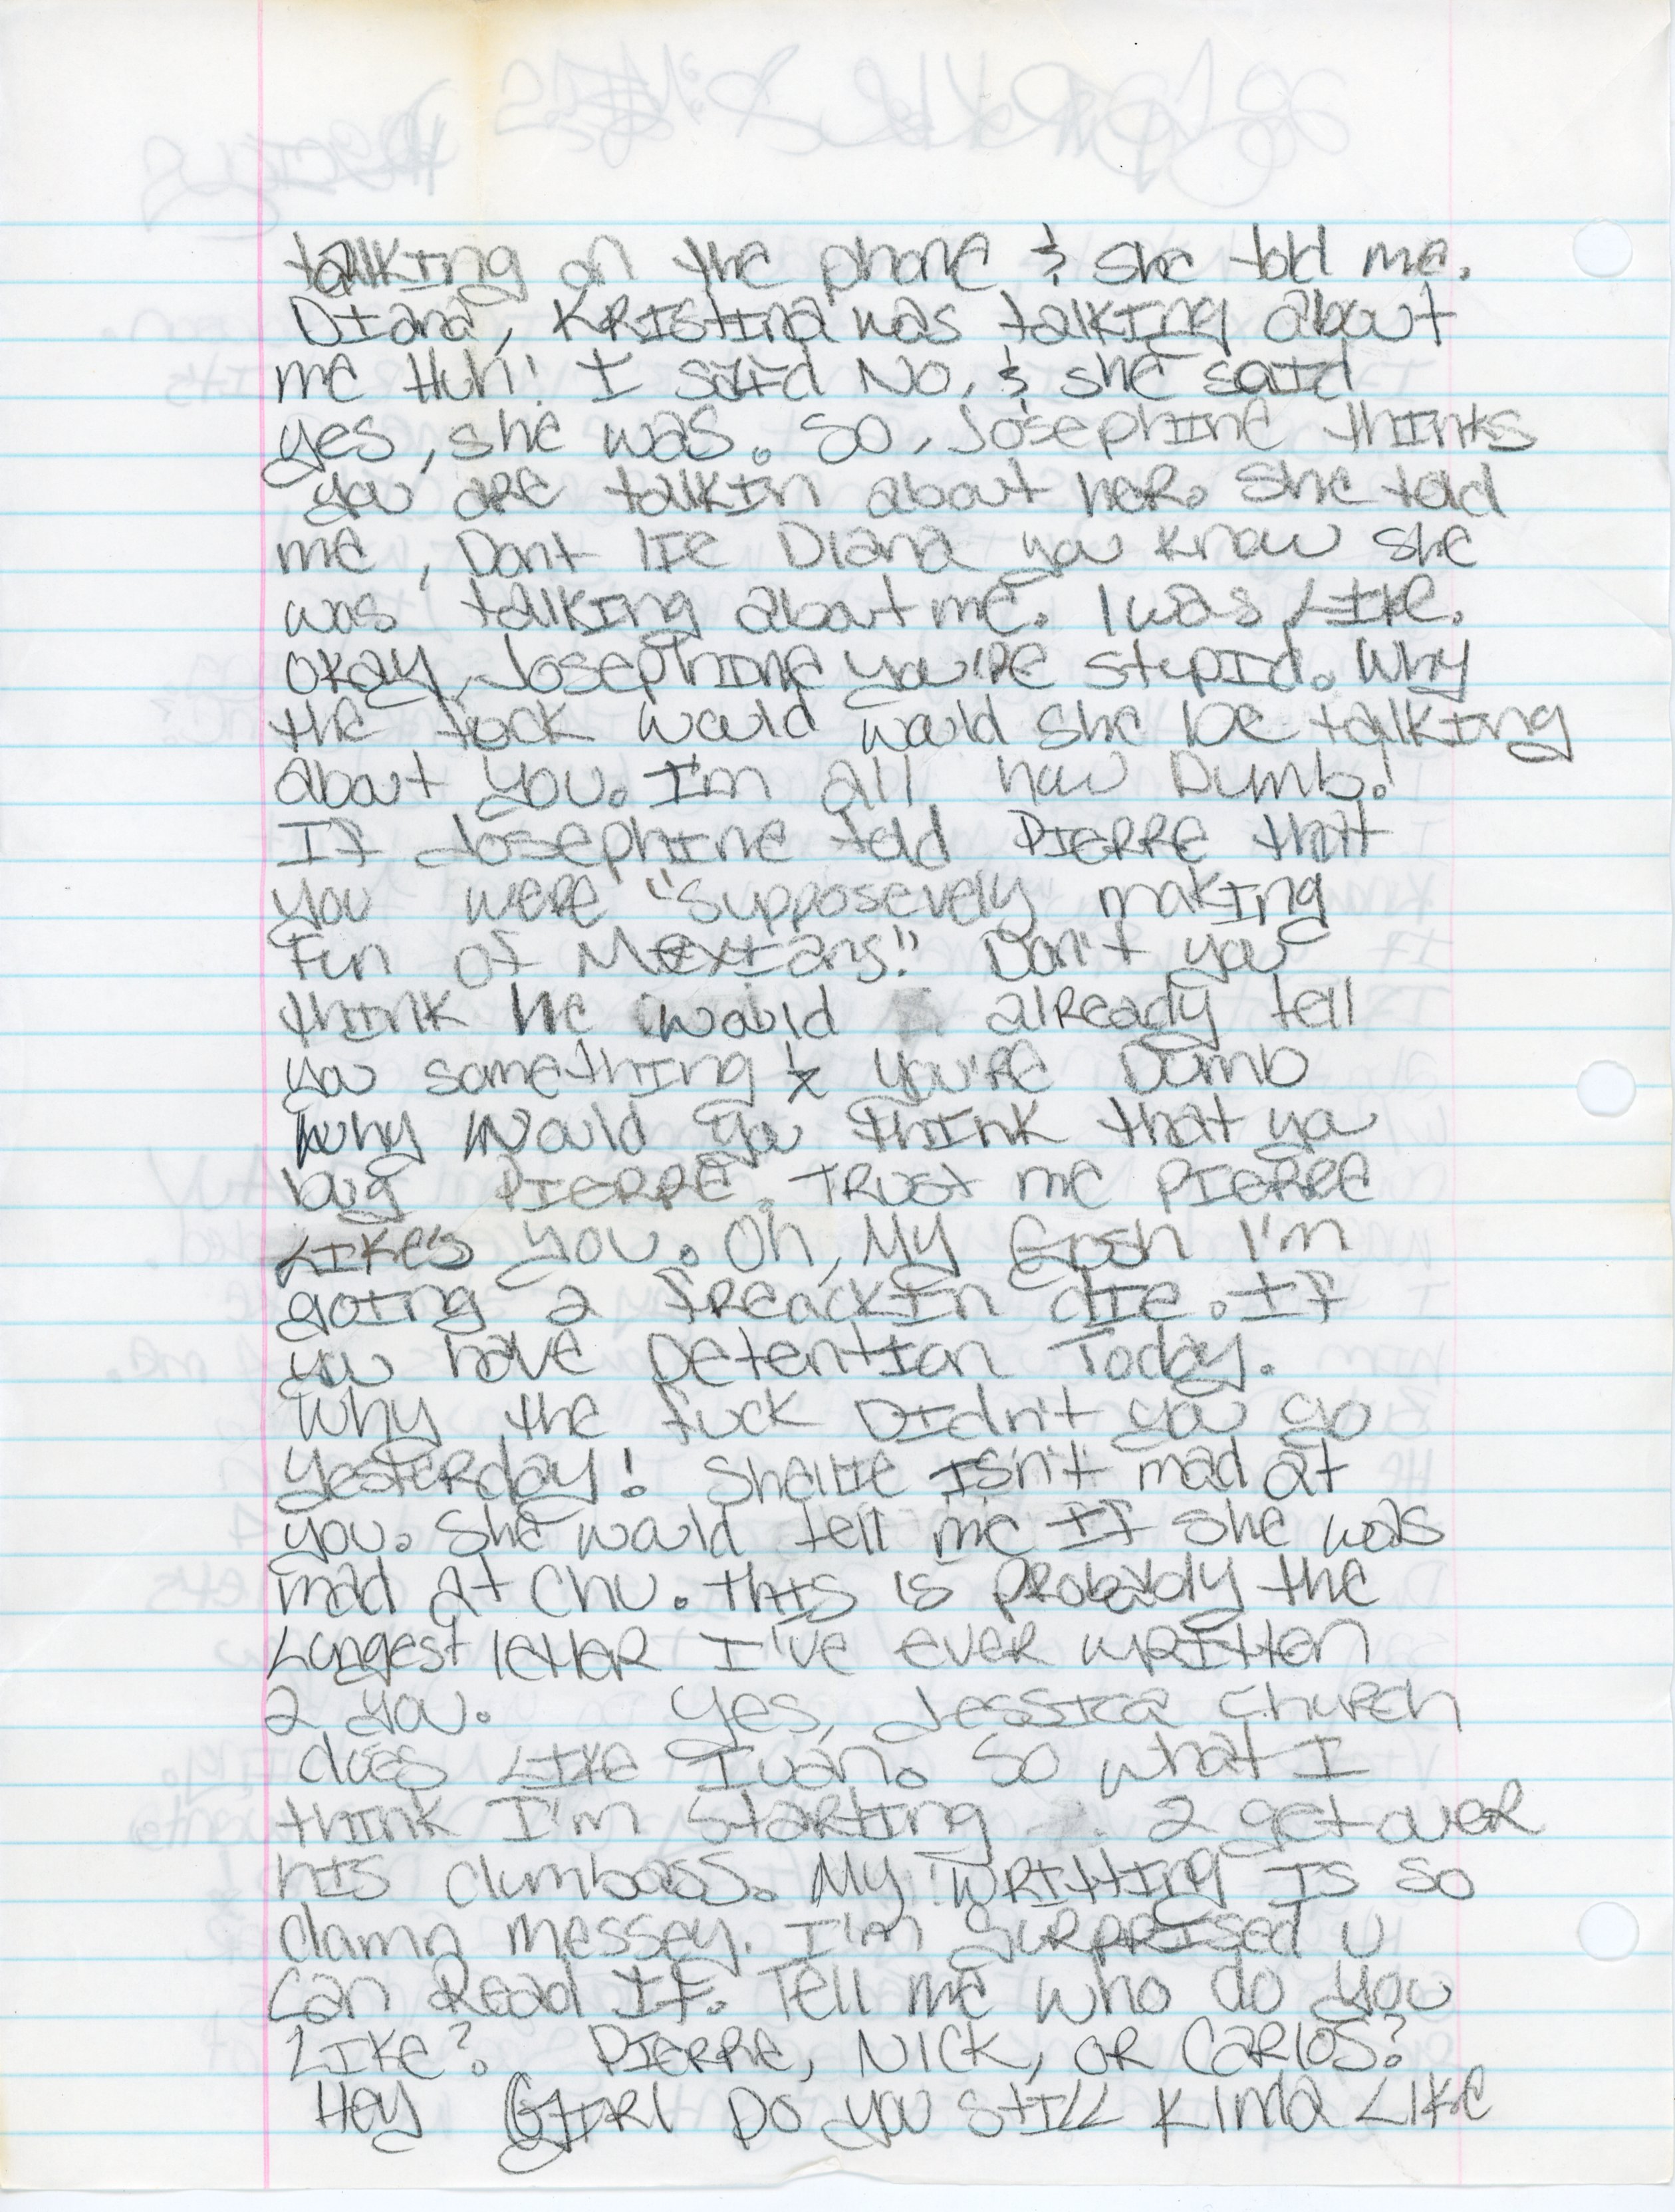 talking on the phone & she told me.
Diana, Kristina was talking about
me Huh! I said No, & she said
yes, she was. So, Josephine thinks
you are talkin about her. She told
me, Dont lie Diana you know she
was talking about me. I was Like.
okay, Josephine you're stupid. Why
the fuck would would she be talking
about you. I'm all how Dumb.
If Josephine told Pierre that
you were "Supposevely making
Fun of Mexians." Don't you
think he would already tell
you something & you're Dumb
Why Would you think that you
bug Pierre. Trust me Pierre
Like's you. Oh, My Gosh I'm
going 2 freackin die. If
you have Detention Today.
Why the fuck Didn't you go
yesterday! Shellie Isn't mad at
you. She would tell me If she was
mad at Chu. This is probably the
Longest letter I've ever written
2 you. Yes, Jessica Church
does Like Ivan. So what I
think I'm starting 2 get over
his dumbass. My writting Is so
damn messey. I'm surprised U
can Read It. Tell me who do you
Like? Pierre, Nick, or Carlos?
Hey Girl Do you still kinda Like